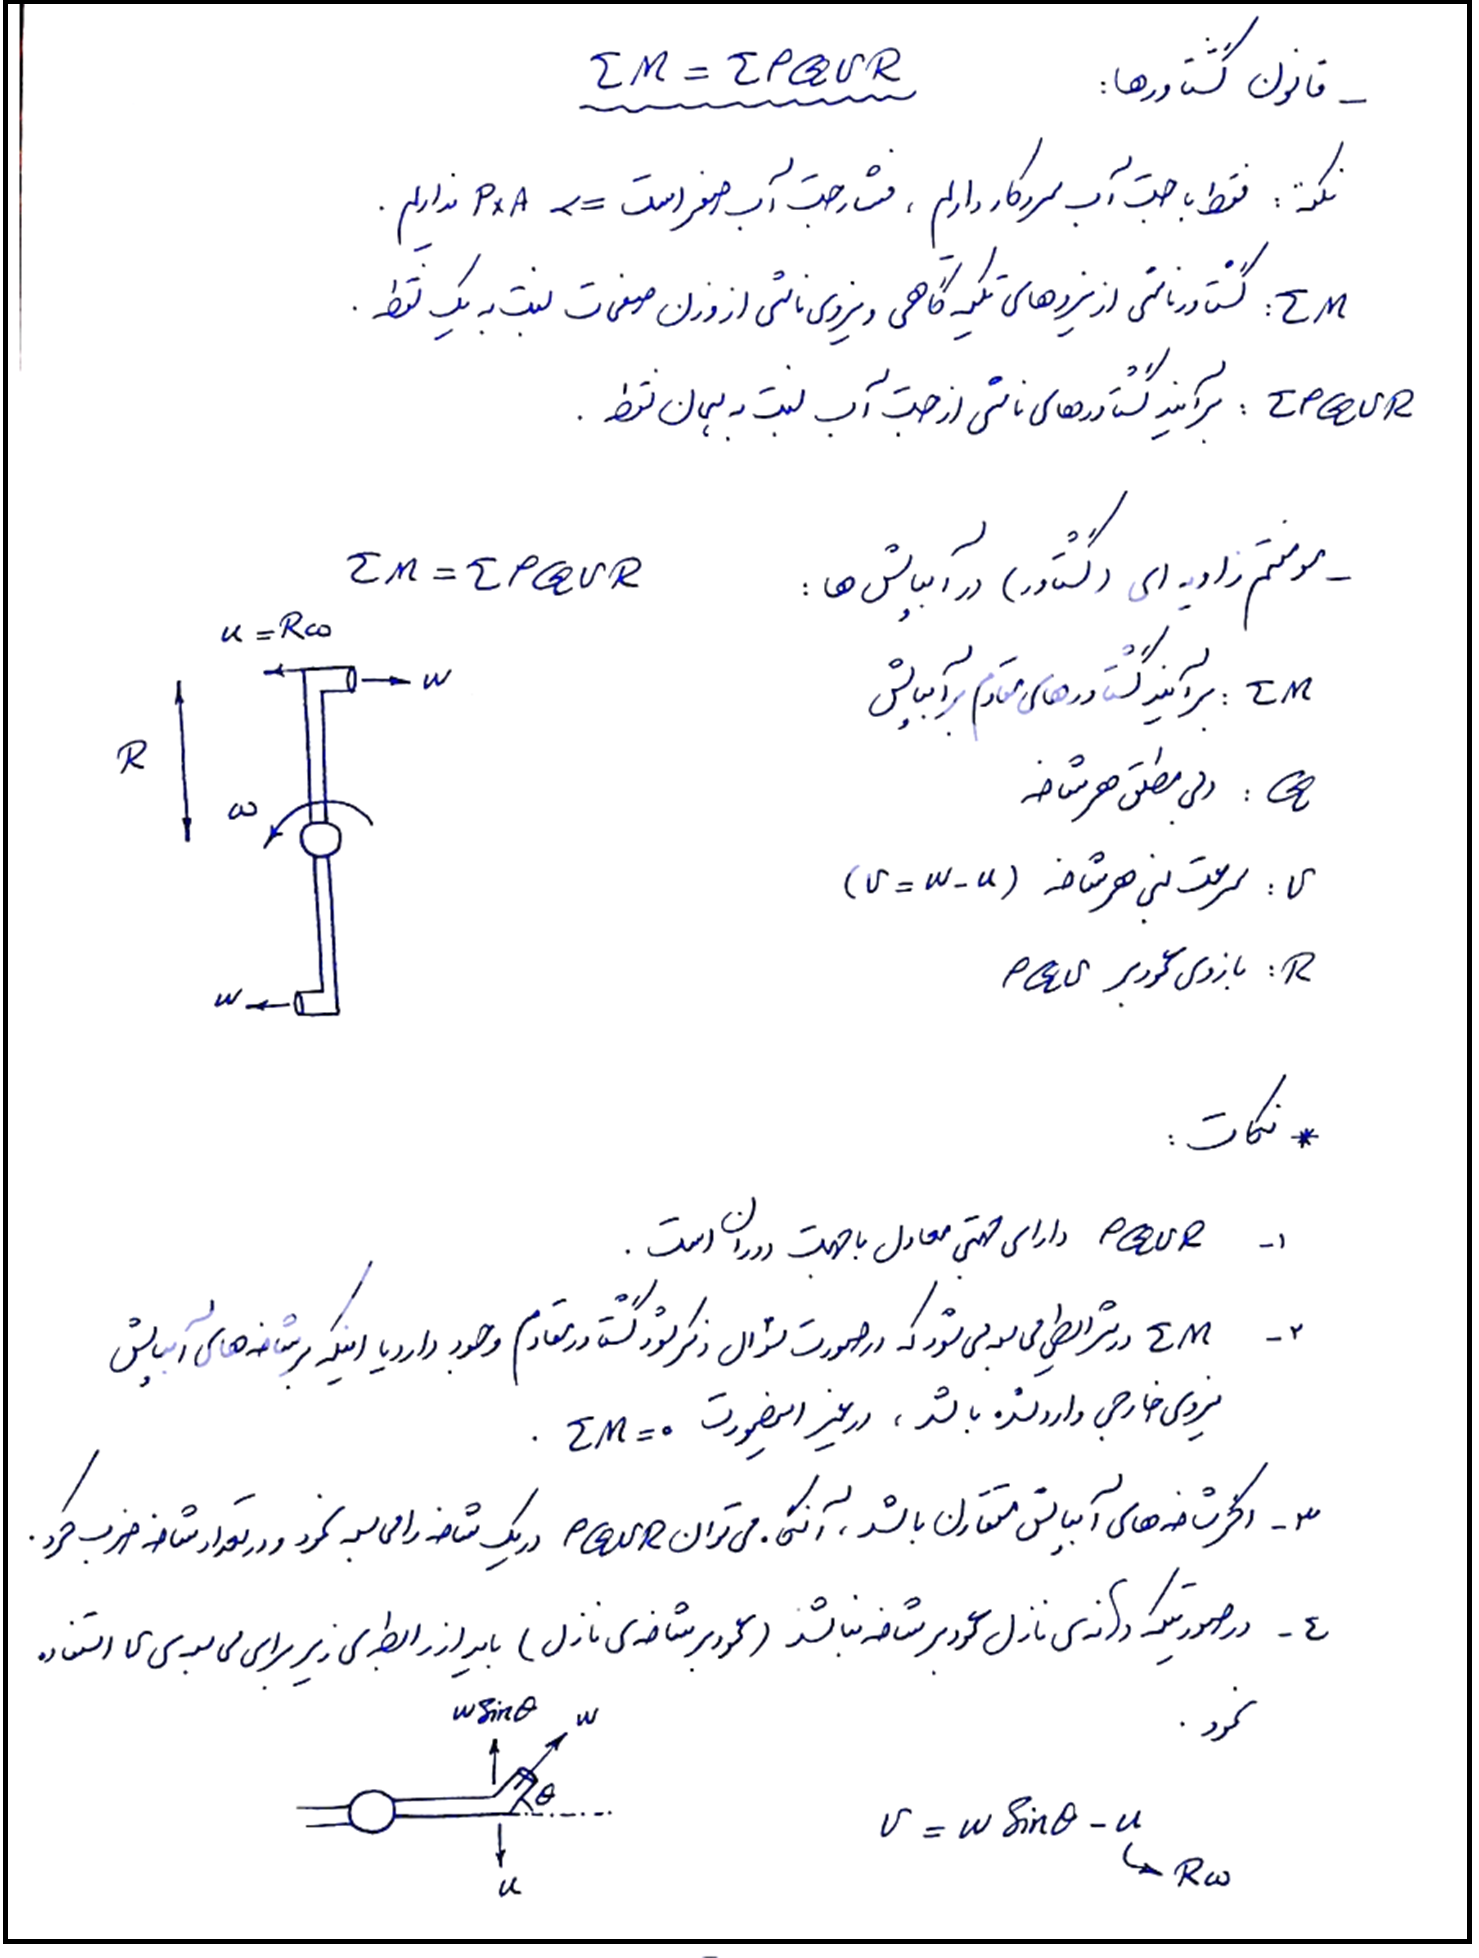 - قانون گشتاورها: ΣM = ΣρQVR
نکته: فقط با جت آب سروکار داریم، فشار جت آب صفر است => P×A نداریم.
ΣM: گشتاور ناشی از نیروهای تکیه گاهی و نیروی ناشی از وزن صفحات نسبت به یک نقطه.
ΣρQVR: برآیند گشتاورهای ناشی از جت آب نسبت به همان نقطه.
- مومنتم زاویه ای (گشتاور) در آبپاش ها: ΣM = ΣρQVR
u = Rω
w
R
ω
w
ΣM: برآیند گشتاورهای مقاوم بر آبپاش
Q: دبی مطلق هر شاخه
V: سرعت نسبی هر شاخه (V = w - u)
R: بازوی عمود بر ρQV
* نکات:
۱- ρQVR دارای جهتی معادل با جهت دوران است.
۲- ΣM در شرایطی محاسبه می شود که در صورت سؤال ذکر شود گشتاور مقاوم وجود دارد یا اینکه بر شاخه های آبپاش
نیروی خارجی وارد شده باشد، در غیر اینصورت ΣM = ۰.
۳- اگر شاخه های آبپاش متقارن باشد، آنگاه می توان ρQVR در یک شاخه را محاسبه نمود و در تعداد شاخه ضرب کرد.
٤- در صورتیکه دهانه ی نازل عمود بر شاخه نباشد (عمود بر شاخه ی نازل) باید از رابطه ی زیر برای محاسبه ی V استفاده
نمود.
w sinθ
w
θ
u
V = w sinθ - u
Rω